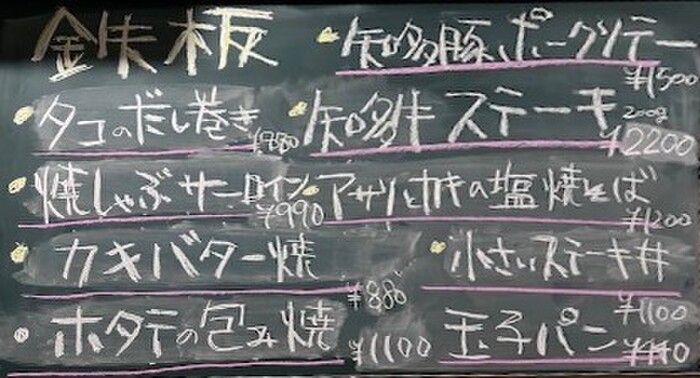 鉄板
タコのだし巻き
¥880
焼しゃぶサーロイン
¥990
カキバター焼
¥880
ホタテの包み焼
¥1100
知多豚ポークソテー
¥1500
知多牛ステーキ 200g
¥2200
アサリとカキの塩焼そば
¥1200
小さいステーキ丼
¥1100
玉子パン